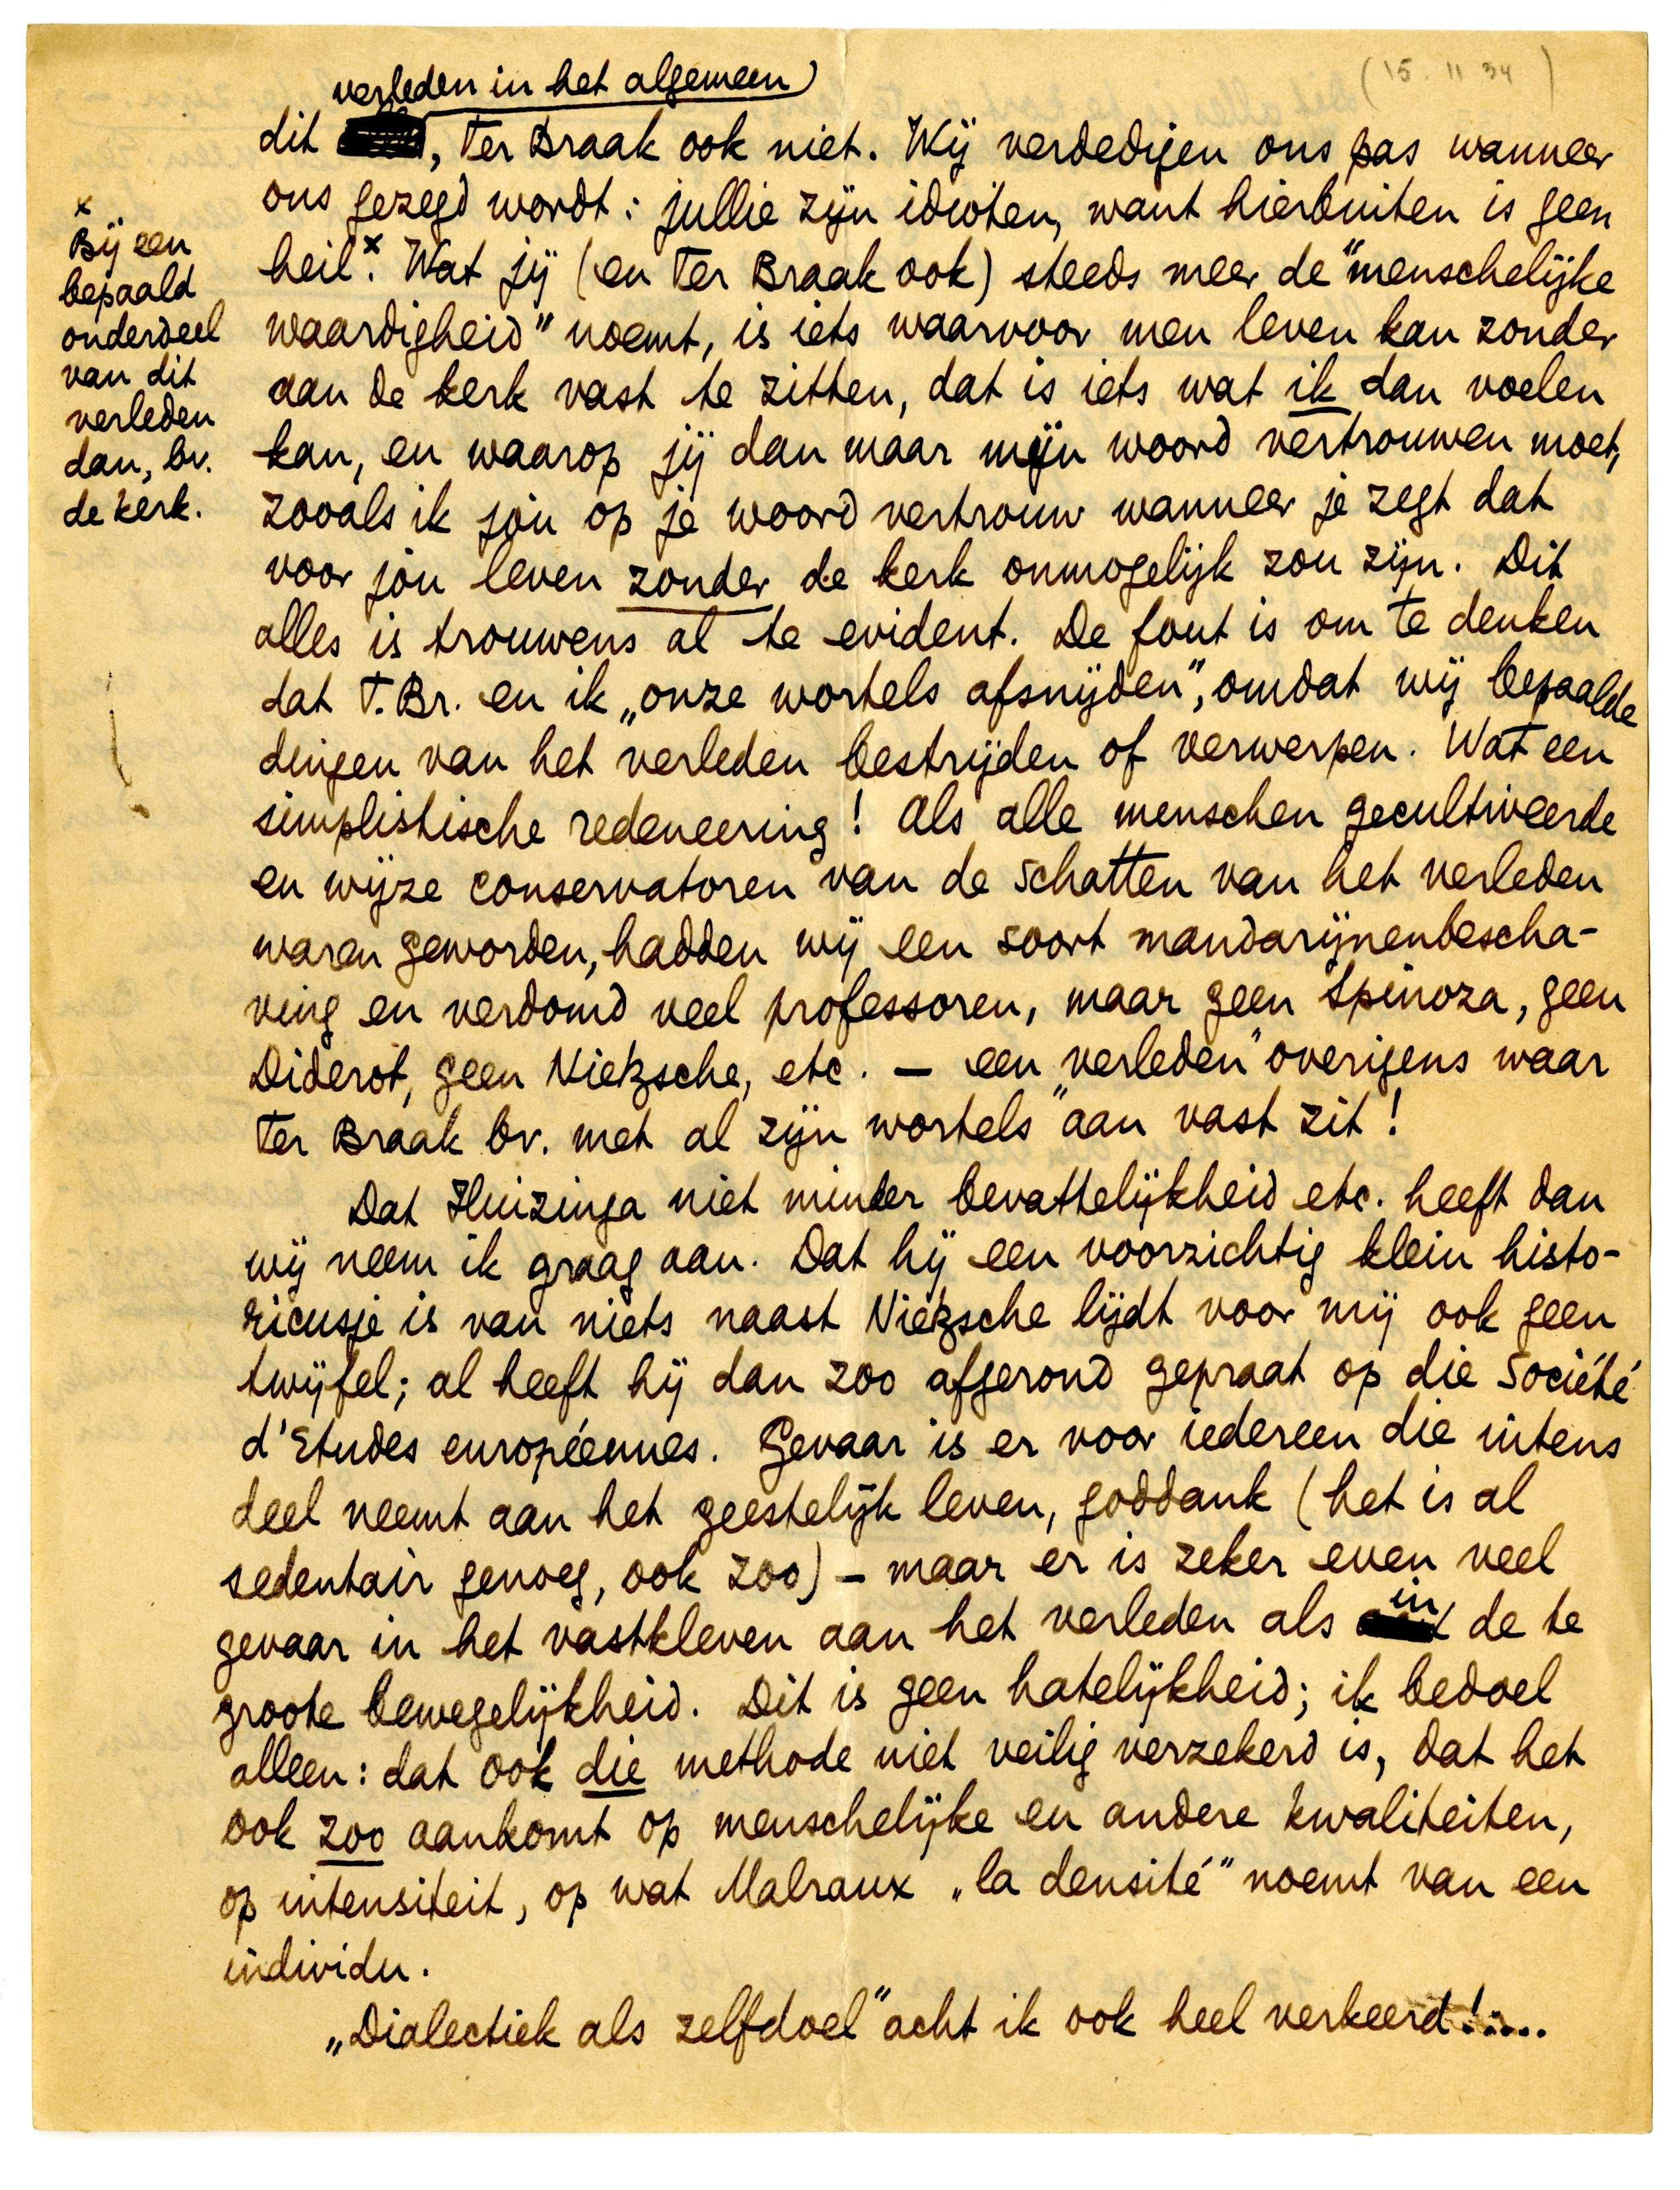 (15.11 34)
verleden in het algemeen
dit , Ter Braak ook niet. Wij verdedigen ons pas wanneer
ons gezegd wordt: jullie zijn idioten, want hierbuiten is geen
heil x. Wat jij (en Ter Braak ook) steeds meer de "menschelijke
waardigheid" noemt, is iets waarvoor men leven kan zonder
aan de kerk vast te zitten, dat is iets wat ik dan voelen
kan, en waarop jij dan maar mijn woord vertrouwen moet,
zooals ik jóu op je woord vertrouw wanneer je zegt dat
voor jóu leven zonder de kerk onmogelijk zou zijn. Dit
alles is trouwens al te evident. De fout is om te denken
dat T.Br. en ik „onze wortels afsnijden", omdat wij bepaalde
dingen van het verleden bestrijden of verwerpen. Wat een
simplistische redeneering! Als alle menschen gecultiveerde
en wijze conservatoren van de schatten van het verleden
waren geworden, hadden wij een soort mandarijnenbescha-
ving en verdomd veel professoren, maar geen Spinoza, geen
Diderot, geen Nietzsche, etc. — een „verleden" overigens waar
Ter Braak bv. met al zijn „wortels" aan vast zit!
Dat Huizinga niet minder bevattelijkheid etc. heeft dan
wij neem ik graag aan. Dat hij een voorzichtig klein histo-
ricusje is van niets naast Nietzsche lijdt voor mij ook geen
twijfel; al heeft hij dan zoo afgerond gepraat op die Société
d'Etudes européennes. Gevaar is er voor iedereen die intens
deel neemt aan het geestelijk leven, goddank (het is al
sedentair genoeg, ook zoo) — maar er is zeker even veel
gevaar in het vastkleven aan het verleden als in de te
groote bewegelijkheid. Dit is geen hatelijkheid; ik bedoel
alleen: dat ook die methode niet veilig verzekerd is, dat het
ook zoo aankomt op menschelijke en andere kwaliteiten,
op intensiteit, op wat Malraux „la densité" noemt van een
individu.
„Dialectiek als zelfdoel" acht ik ook heel verkeerd!.....
x
Bij een
bepaald
onderdeel
van dit
verleden
dan, bv.
de kerk.